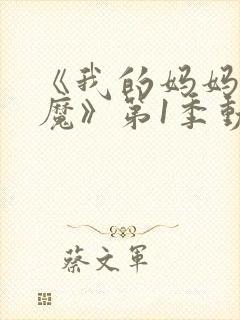 《我的妈妈
魔》第1季動
蔡文軍